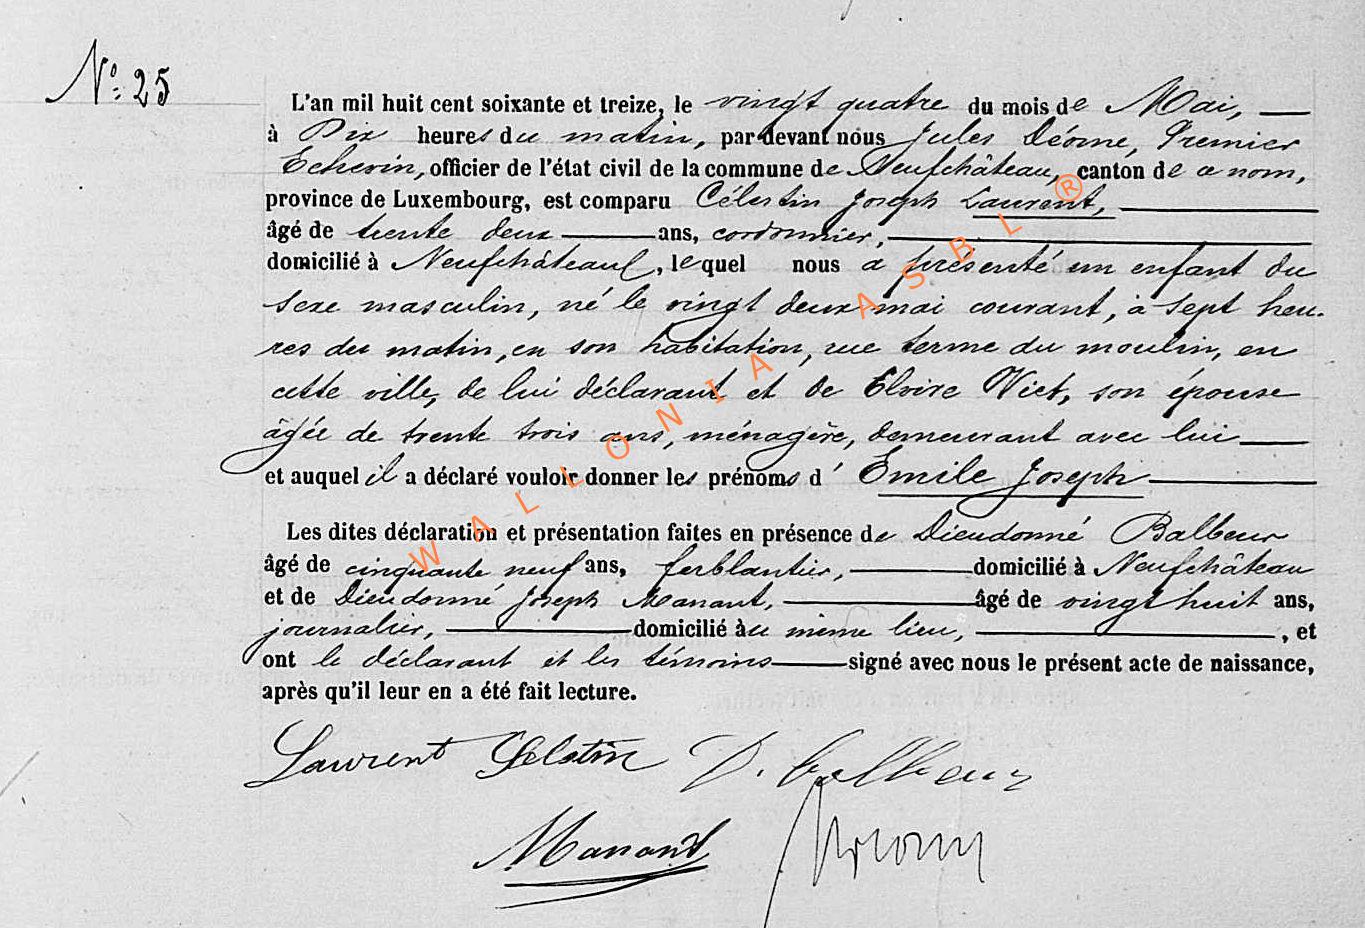 N°: 25
L'an mil huit cent soixante et treize, le vingt quatre du mois de Mai,
à Dix heures du matin, par devant nous Jules Déome, Premier
Echevin, officier de l'état civil de la commune de Neufchâteau, canton de ce nom,
province de Luxembourg, est comparu Célestin Joseph Laurent,
âgé de trente deux ans, cordonnier,
domicilié à Neufchâteau, lequel nous a présenté un enfant du
sexe masculin, né le vingt deux mai courant, à sept heu-
res du matin, en son habitation, rue terme du moulin, en
cette ville, de lui déclarant et de Elvire Wiet, son épouse
âgée de trente trois ans, ménagère, demeurant avec lui
et auquel il a déclaré vouloir donner les prénoms d' Emile Joseph
Les dites déclaration et présentation faites en présence de Dieudonné Balbeur
âgé de cinquante neuf ans, ferblantier, domicilié à Neufchâteau
et de Dieudonné Joseph Manant, âgé de vingt huit ans,
journalier, domicilié au même lieu, , et
ont le déclarant et les témoins signé avec nous le présent acte de naissance,
après qu'il leur en a été fait lecture.
Laurent Celestin D. Balbeur
Manand
WALLONIA ASBL ®